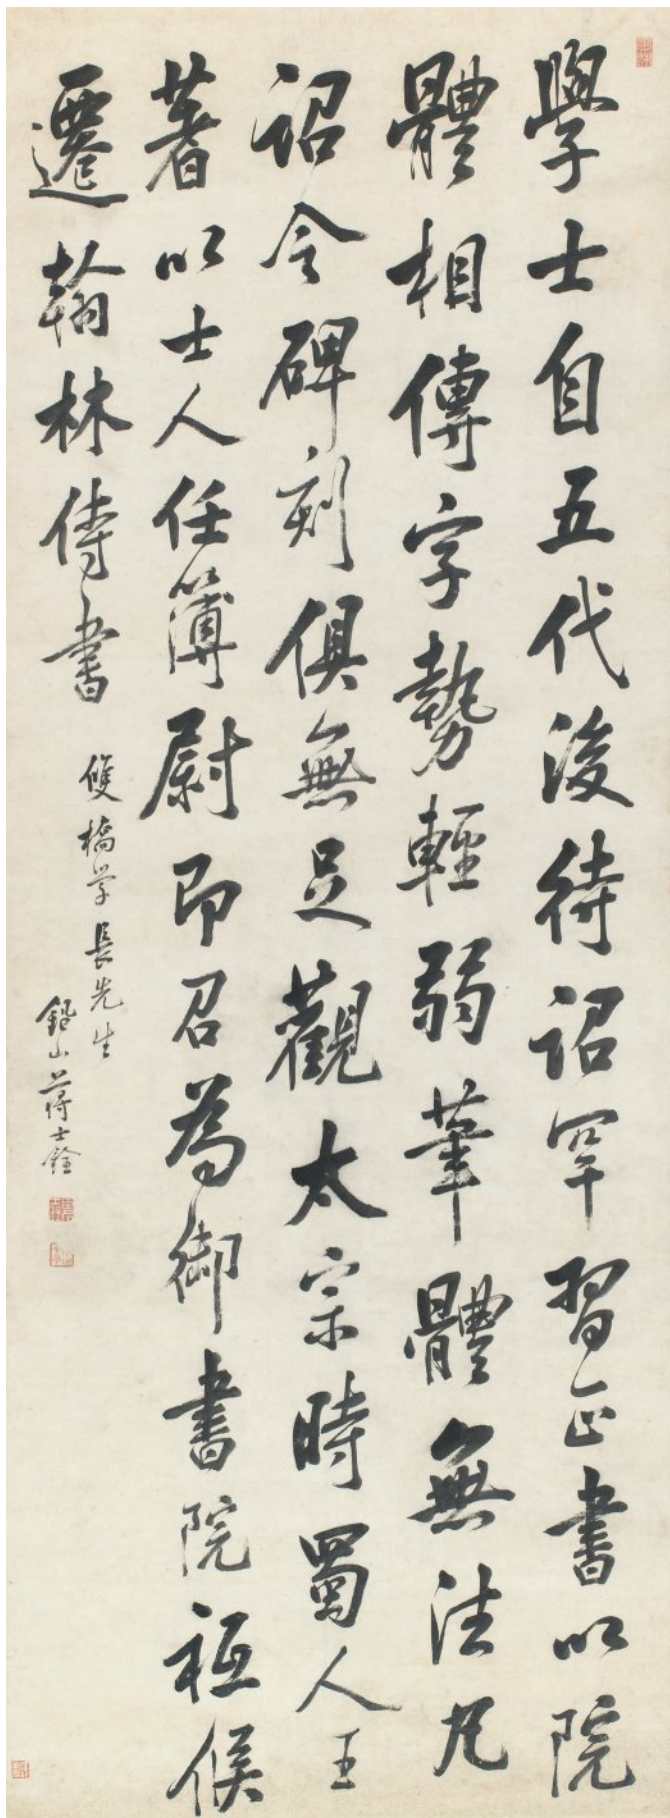 學士自五代後待詔罕習正書以院
體相傳字勢輕弱筆體無法凡
詔令碑刻俱無足觀太宗時蜀人王
著以士人任簿尉即召為御書院祗候
遷翰林侍書
雙橋學長先生
鉛山蔣士銓